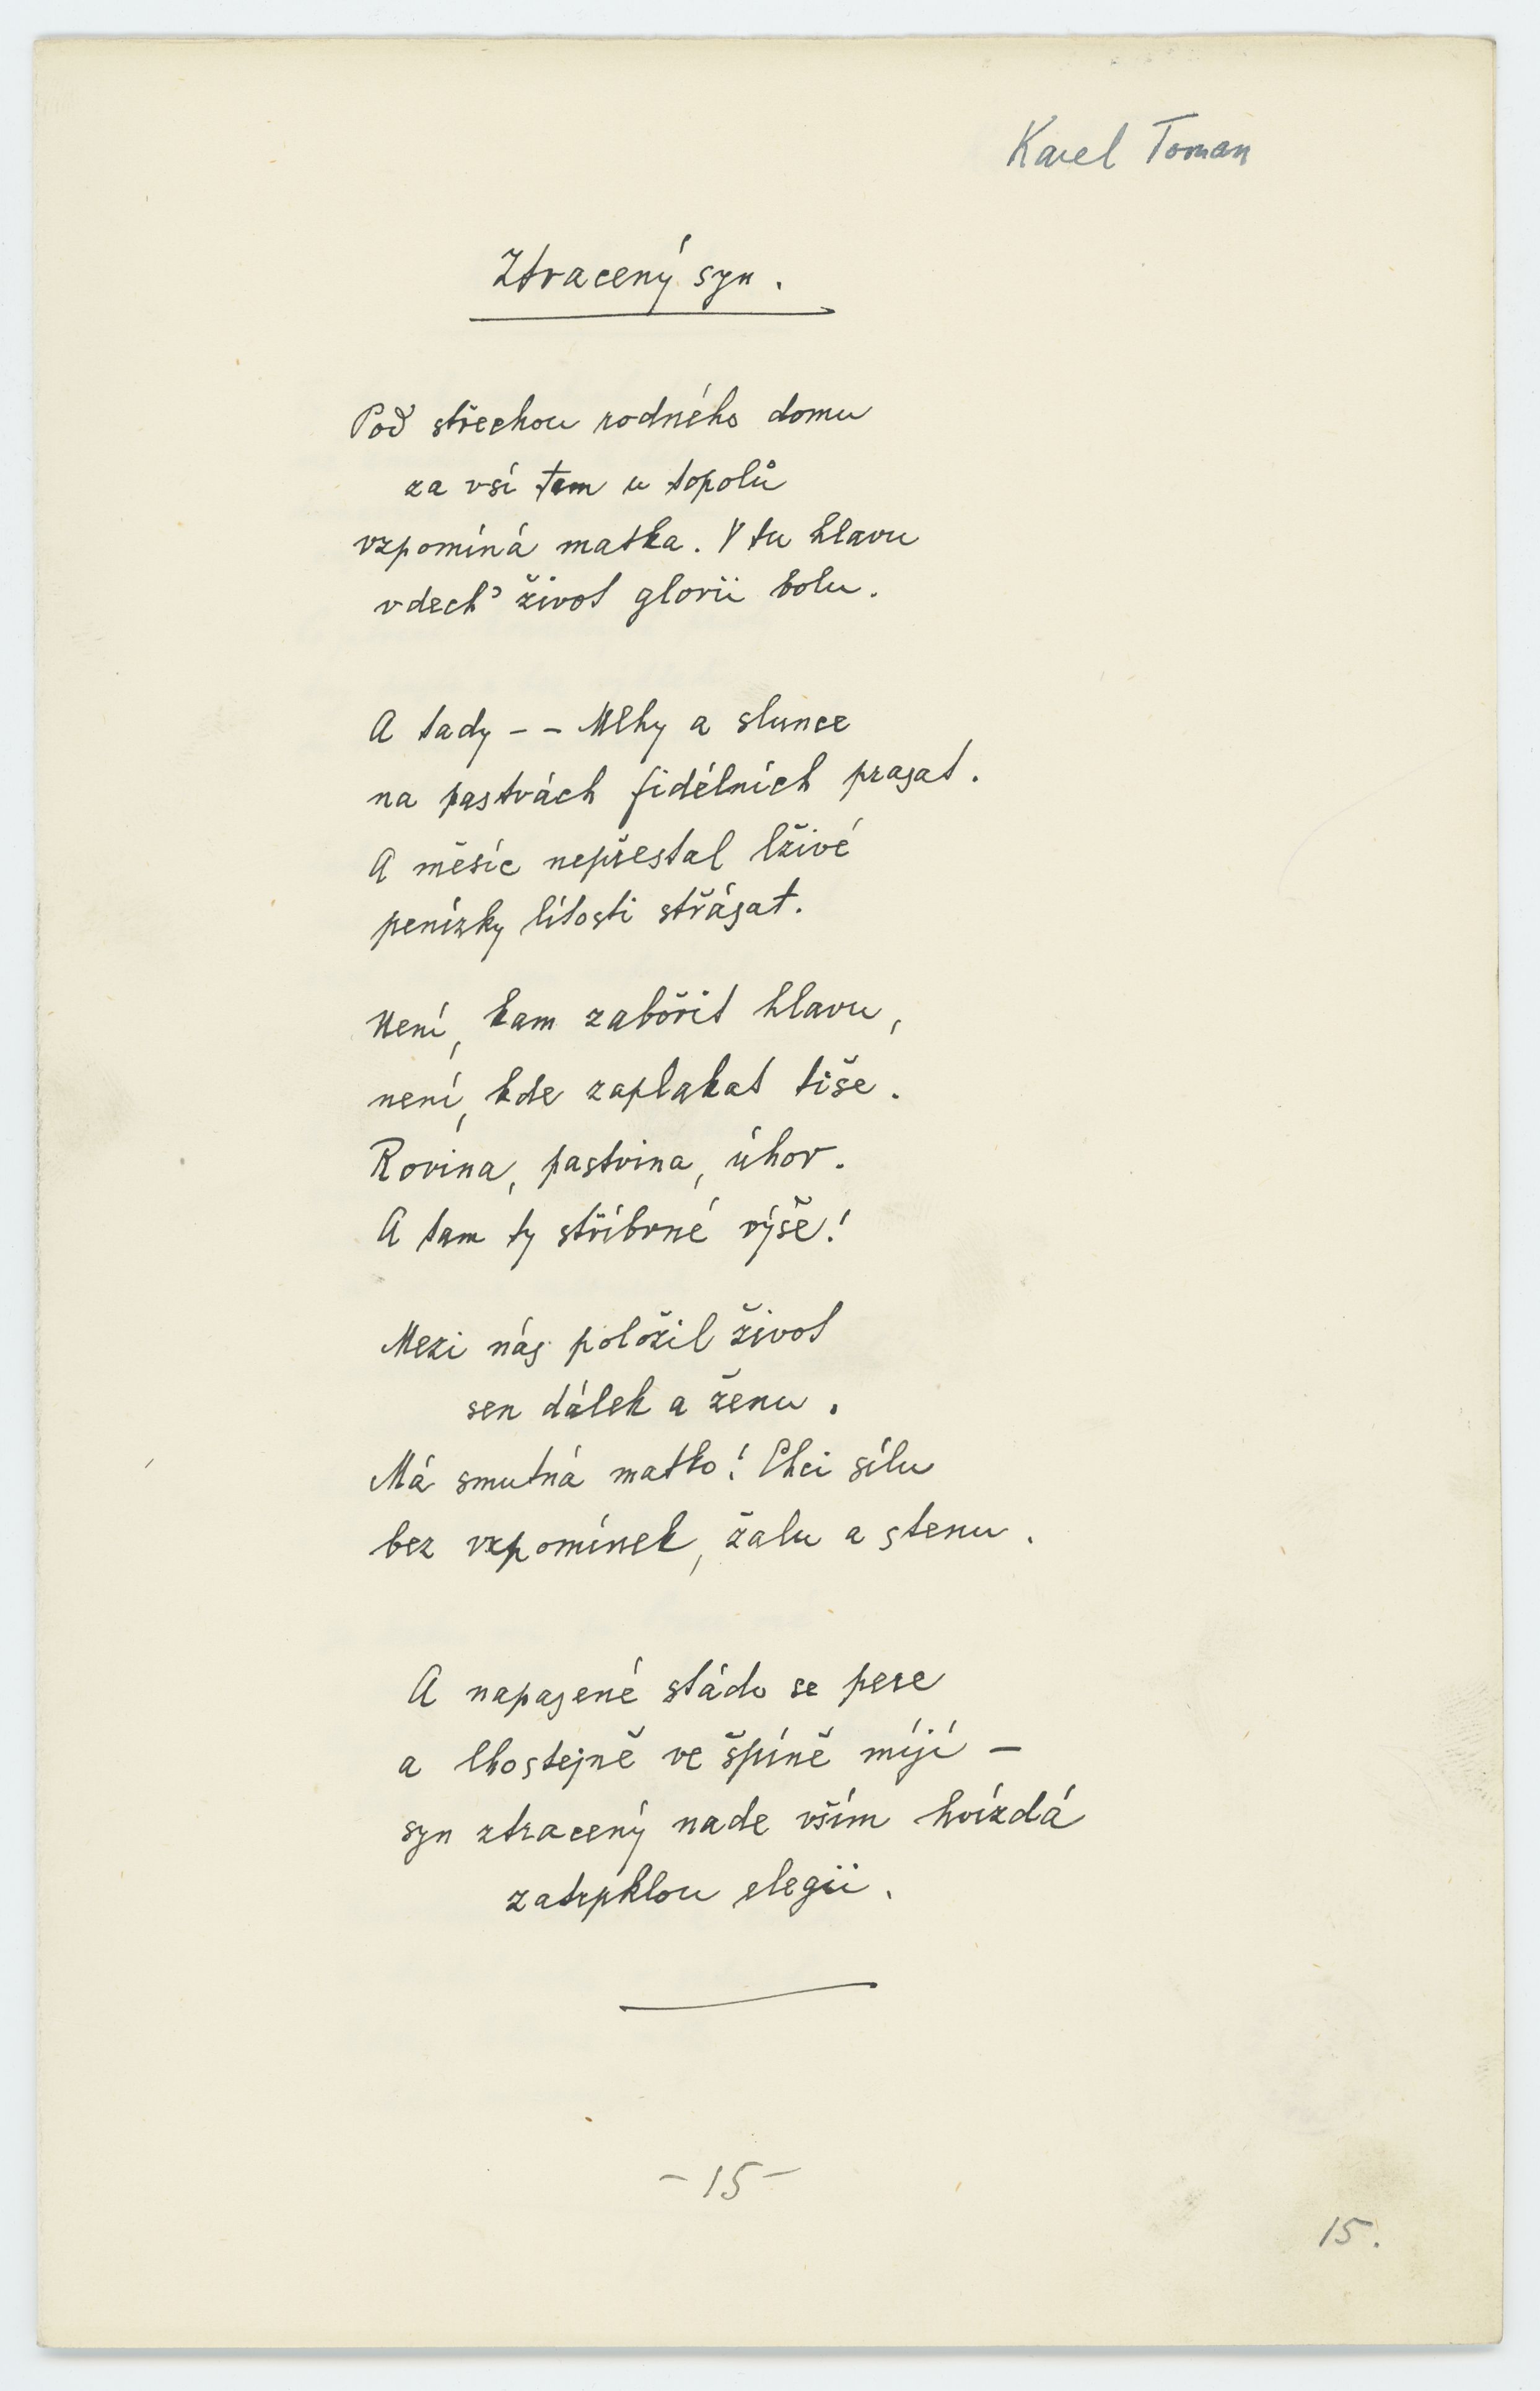 Karel Toman
Ztracený syn.
Pod střechou rodného domu
za vsí tam u topolů
vzpomíná matka. V tu hlavu
vdech' život glorii bolu.
A tady - - Mlhy a slunce
na pastvách fidélních prasat.
A měsíc nepřestal lživé
penízky lítosti střásat.
Není, kam zabořit hlavu,
není, kde zaplakat tiše.
Rovina, pastvina, úhor.
A tam ty stříbrné výše!
Mezi nás položil život
sen dálek a ženu.
Má smutná matko! Chci sílu
bez vzpomínek, žalu a stenu.
A napasené stádo se pere
a lhostejně ve špíně míjí –
syn ztracený nade vším hvízdá
zatrpklou elegii.
- 15 -
15.